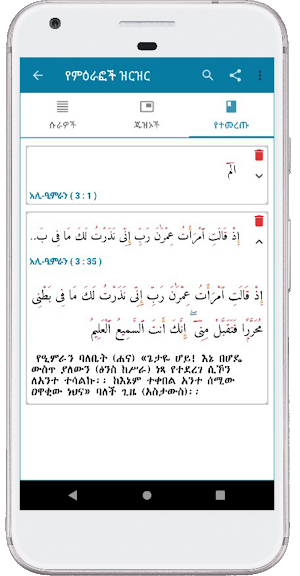 የምዕራፎች ዝርዝር
ሱራዎች
ጁዝኦች
የተመረጡ
الٓمٓ
አሊ-ዒምራን ( 3 : 1 )
إِذْ قَالَتِ ٱمْرَأَتُ عِمْرَٰنَ رَبِّ إِنِّى نَذَرْتُ لَكَ مَا فِى بَ..
አሊ-ዒምራን ( 3 : 35 )
إِذْ قَالَتِ ٱمْرَأَتُ عِمْرَٰنَ رَبِّ إِنِّى نَذَرْتُ لَكَ مَا فِى بَطْنِى
مُحَرَّرًا فَتَقَبَّلْ مِنِّىٓ ۖ إِنَّكَ أَنتَ ٱلسَّمِيعُ ٱلْعَلِيمُ
የዒምራን ባለቤት (ሐና) «ጌታዬ ሆይ! እኔ በሆዴ
ውስጥ ያለውን (ፅንስ ከሥራ) ነጻ የተደረገ ሲኾን
ለአንተ ተሳልኩ፡፡ ከእኔም ተቀበል አንተ ሰሚው
ዐዋቂው ነህና» ባለች ጊዜ (አስታውስ)፡፡